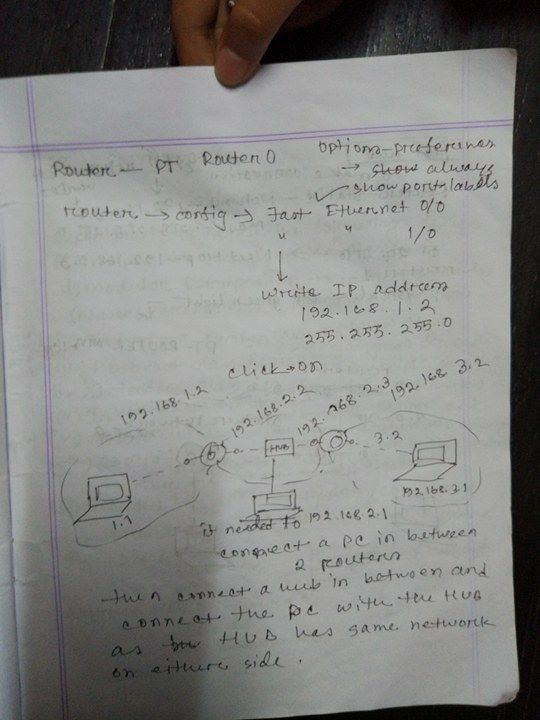 Router - PT Router 0
Options-preferences
→ show always
✓ show port labels
Router → config → Fast Ethernet 0/0
" " 1/0
↓
Write IP address
192.168.1.2
255.255.255.0
Click → on
192.168.1.2
192.168.2.2
192.168.2.3
192.168.3.2
HUB
3.2
1.1
192.168.3.1
if needed to 192.168.2.1
connect a pc in between
2 routers
then connect a hub in between and
connect the pc with the HUB
as HUB has same network
on either side.